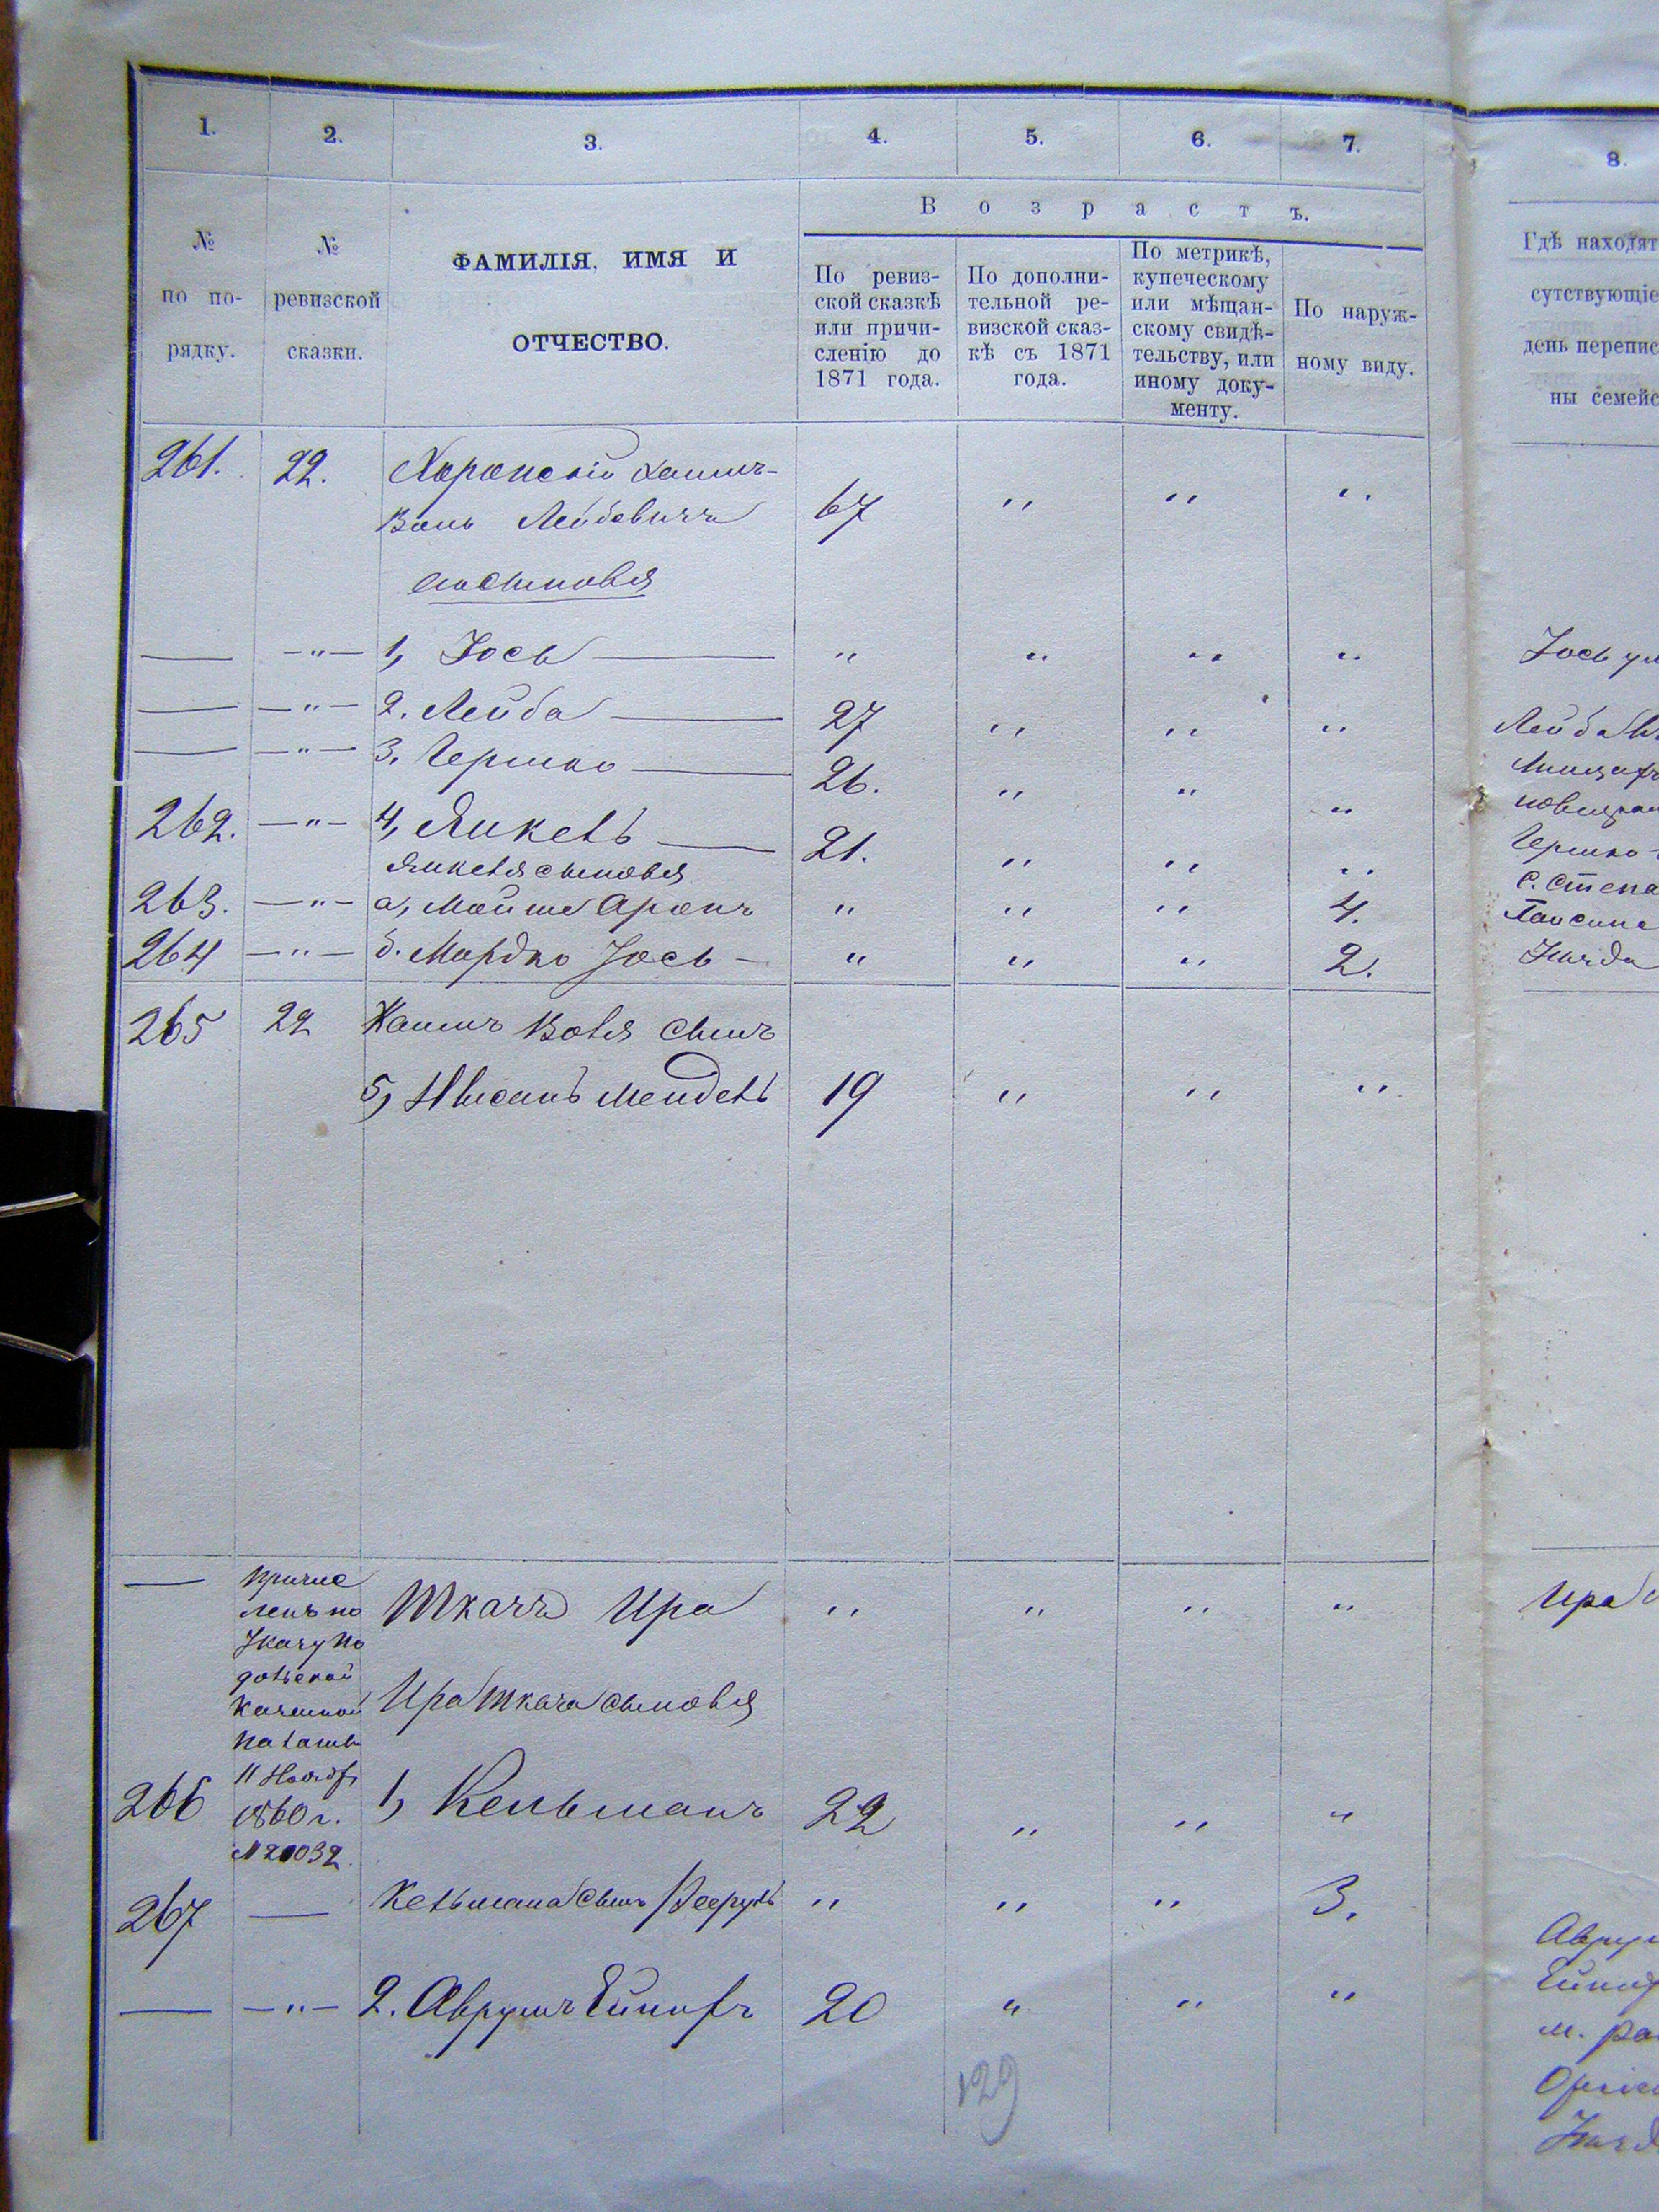 1. 2. 3. 4. 5. 6. 7. 8.
Возрастъ.
№ по по-рядку.
№ ревизской сказки.
ФАМИЛІЯ, ИМЯ И
ОТЧЕСТВО.
По ревиз-
ской сказкѣ
или причи-
сленію до
1871 года.
По дополни-
тельной ре-
визской сказ-
кѣ съ 1871
года.
По метрикѣ,
купеческому
или мѣщан-
скому свидѣ-
тельству, или
иному доку-
менту.
По наруж-
ному виду.
Гдѣ находят
сутствующіе
день перепис
ны семейс
261. 22. Хаимъ-
Волъ Лейбовичъ 67 " " "
сыновья
— —"— 1, Іось — " " " " Іось
— —"— 2. Лейба — 27 " " " Лейба
— —"— 3, Гершко — 26. " " "
262. —"— 4, Янкель — 21. " " " Гершко
Янкеля сыновья
263. —"— а, Мойше Аронъ " " " 4.
264 —"— б. Мордко Іось — " " " 2.
265 22 Хаимъ Вовя сынъ
5, Нисанъ Мендель 19 " " "
— Причис
ленъ по
Указу По
дольской
Казенной
Палаты
11 Ноября
1860 г.
Ткачъ Ира " " " " Ира
Ира Ткача сыновья
266 1, Кельманъ 22 " " "
267 — Кельмана сынъ " " " 3.
— —"— 2. Аврумъ 20 " " "
129